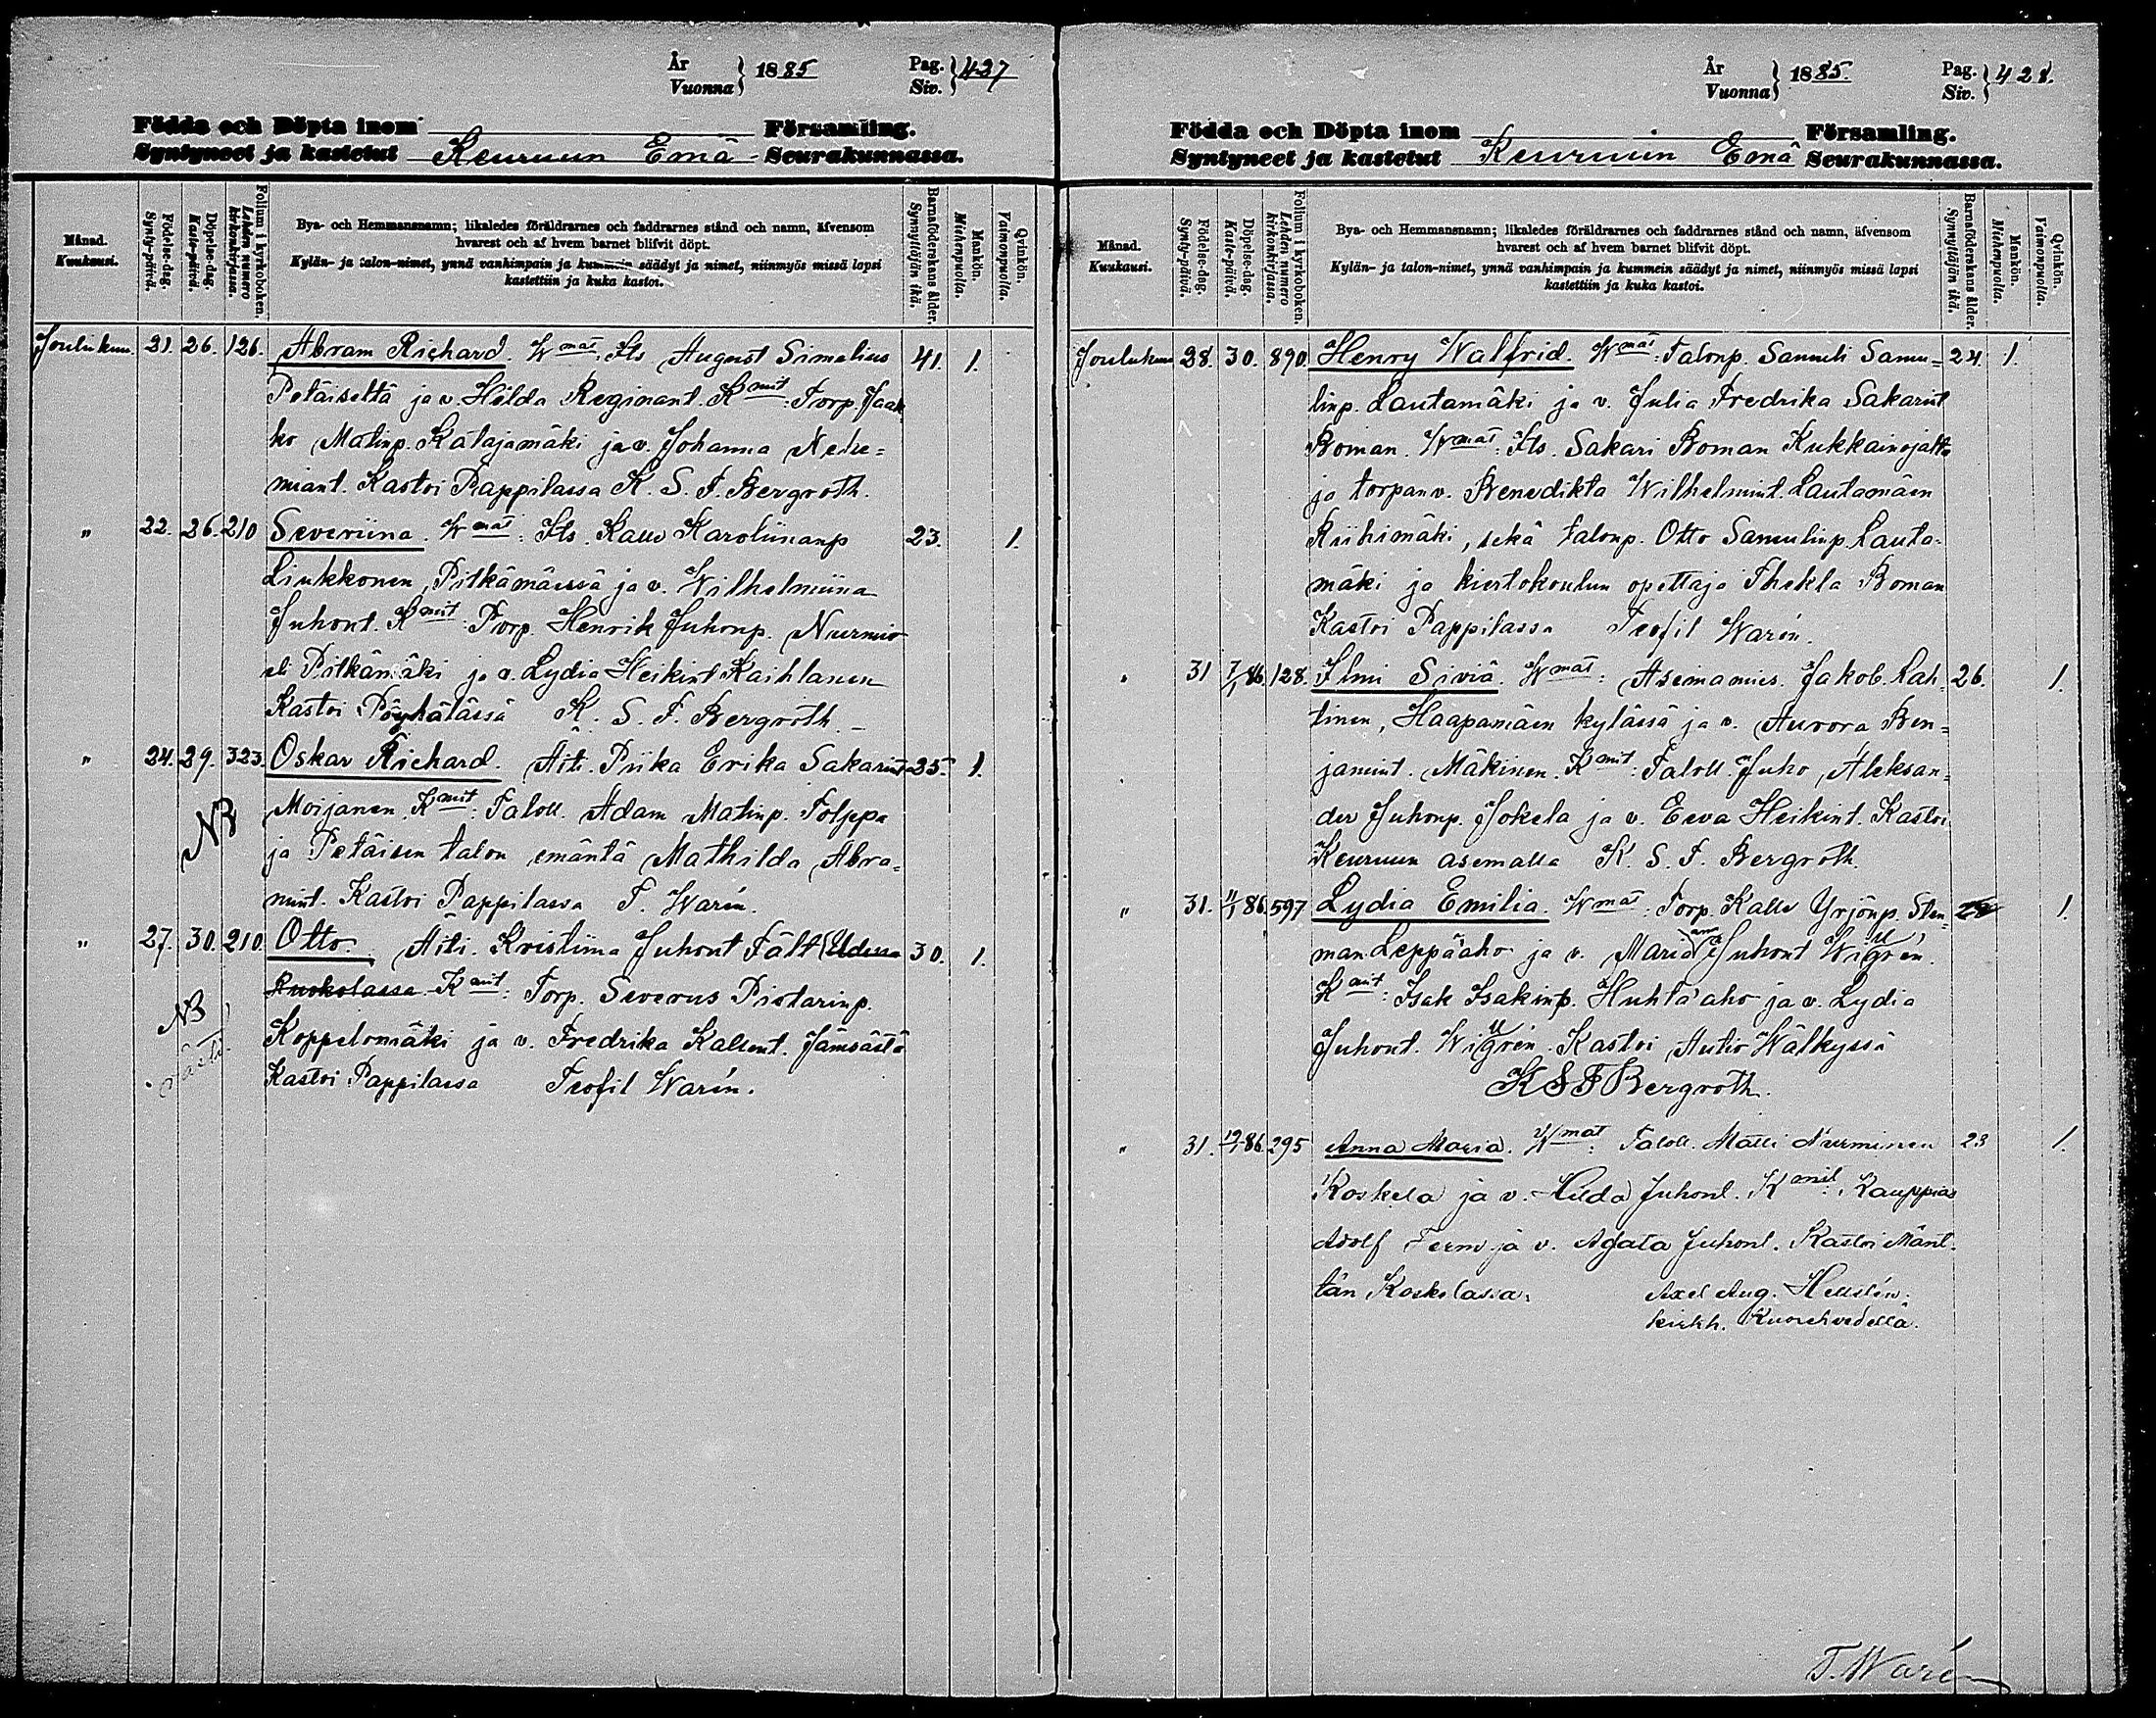 År
Vuonna } 1885
Pag.
Siv. } 427
Födda och Döpta inom Församling.
Syntyneet ja kastetut Keuruun Emä Seurakunnassa.
Månad.
Kuukausi.
Födelse-dag.
Synty-päivä.
Döpelse-dag.
Kaste-päivä.
Folium i kyrkoboken.
Lehden numero kirkonkirjassa.
Bya- och Hemmansnamn; likaledes föräldrarnes och faddrarnes stånd och namn, äfvensom
hvarest och af hvem barnet blifvit döpt.
Kylän- ja talon-nimet, ynnä vanhimpain ja kummein säädyt ja nimet, niinmyös missä lapsi
kastettiin ja kuka kastoi.
Barnaföderskans ålder.
Synnyttäjän ikä.
Mankön.
Miehenpuolia.
Qvinkön.
Vaimonpuolia.
Joulukuu. 21. 26. 126. Abram Richard. Wmat. Its August Simelius 41. 1.
Petäiseltä ja v. Hilda Reginant. Kmit. Torp. Jaak
ko Matinp. Katajamäki ja v. Johanna Nehe=
miant. Kastoi Pappilassa K. S. F. Bergroth.
" 22. 26. 210 Severiina. Wmat: Its. Kalle Karoliinanp 23. 1.
Liukkonen, Pitkämäessä ja v. Wilhelmiina
Juhont. Kmit: Torp. Henrik Juhonp. Nurmio
eli Pitkämäki ja v. Lydia Heikint Kaihlanen
Kastoi Pöyhälässä K. S. F. Bergroth.
" 24. 29. 323. Oskar Richard. Äiti. Piika Erika Sakarint 35. 1.
NB
Moijanen. Kmit: Taloll. Adam Matinp. Tolppa
ja Petäisen talon emäntä Mathilda Abra=
mint. Kastoi Pappilassa T. Warén.
" 27. 30. 210. Otto. Äiti. Kristiina Juhont Fält 30. 1.
NB
Ruokolassa. Kmit: Torp. Severus Pistarinp.
Koppelomäki ja v. Fredrika Kallent. Jämsästä
Kastoi Pappilassa Teofil Warén.
År
Vuonna } 1885.
Pag.
Siv. } 428.
Födda och Döpta inom Församling.
Syntyneet ja kastetut Keuruun Emä Seurakunnassa.
Månad.
Kuukausi.
Födelse-dag.
Synty-päivä.
Döpelse-dag.
Kaste-päivä.
Folium i kyrkoboken.
Lehden numero kirkonkirjassa.
Bya- och Hemmansnamn; likaledes föräldrarnes och faddrarnes stånd och namn, äfvensom
hvarest och af hvem barnet blifvit döpt.
Kylän- ja talon-nimet, ynnä vanhimpain ja kummein säädyt ja nimet, niinmyös missä lapsi
kastettiin ja kuka kastoi.
Barnaföderskans ålder.
Synnyttäjän ikä.
Mankön.
Miehenpuolia.
Qvinkön.
Vaimonpuolia.
Jouluhuu 28. 30. 890. Henry Walfrid. Wmat: Talonp. Samuli Samu= 24. 1.
linp. Lautamäki ja v. Julia Fredrika Sakarint
Boman. Wmat: Its. Sakari Boman Kukkainojalta
ja torpan v. Benedikta Wilhelmint. Lautamäen
Riihimäki, sekä talonp. Otto Samulinp. Lauta-
mäki ja kiertokoulun opettaja Thekla Boman
Kastoi Pappilassa Teofil Warén.
" 31 7/1 86. 128. Ilmi Siviä. Wmat: Asemamies. Jakob. Lah= 26. 1.
tinen, Haapamäen kylässä ja v. Aurora Ben=
jamint. Mäkinen. Kmit: Taloll. Juho Aleksan=
der Juhonp. Jokela ja v. Eeva Heikint. Kastoi
Keuruun asemalla K. S. F. Bergroth.
" 31. 11/1 86. 597 Lydia Emilia. Wmat: Torp. Kalle Yrjönp. Sten= 1.
man Leppäaho ja v. Maria Juhont Wigrén.
Kmit: Isak Isakinp. Huhtaaho ja v. Lydia
Juhont. Wigrén. Kastoi Autio Wälkyssä
K S F Bergroth.
" 31. 19/1 86. 295 Anna Maria. Wmat: Taloll. Matti Nurminen 23 1.
Koskela ja v. Hilda Juhont. Kmit: Kauppias
Adolf Ferm ja v. Agata Juhont. Kastoi Mänt-
tän Koskelassa. Axel Aug. Hellsten.
kirkh. Kuorehvedellä.
T. Warén